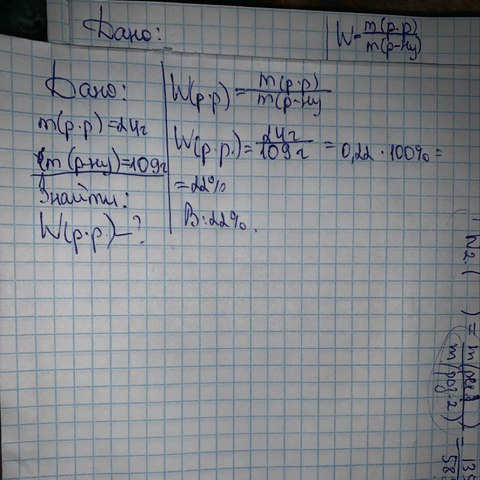 Дано:
W = m(р.р) / m(р-ну)
Дано:
m(р.р) = 24г
m(р-ну) = 109г
Знайти:
W(р.р.) – ?
W(р.р) = m(р.р) / m(р-ну)
W(р.р.) = 24г / 109г = 0,22 · 100% =
= 22%
В: 22%.